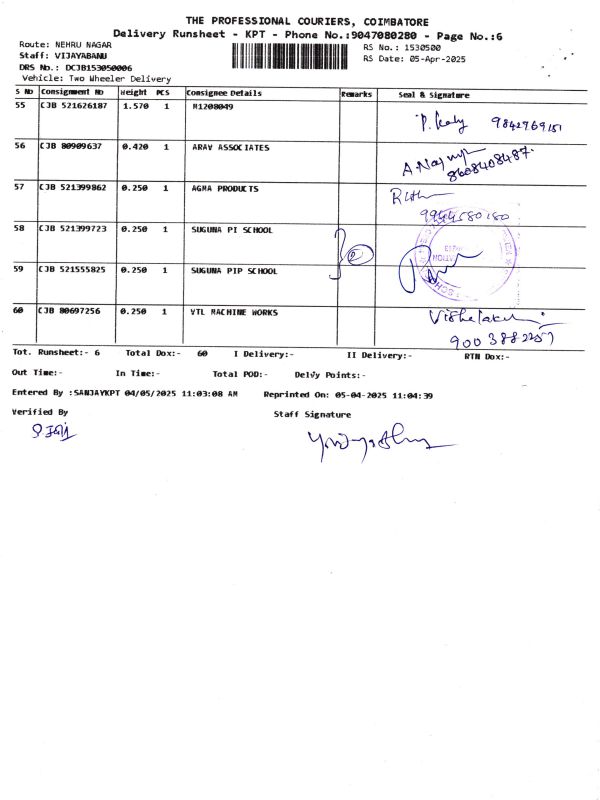 THE PROFESSIONAL COURIERS, COIMBATORE
Delivery Runsheet - KPT - Phone No.:9047080280 - Page No.:6
Route: NEHRU NAGAR
RS No.: 1530500
Staff: VIJAYABANU
RS Date: 05-Apr-2025
DRS No.: DCJB153050006
Vehicle: Two Wheeler Delivery
S No Consignment No Height PCS Consignee Details Remarks Seal & Signature
55 CJB 521626187 1.570 1 M1208049
9842769151
56 CJB 80909637 0.420 1 ARAV ASSOCIATES
8608408487.
57 CJB 521399862 0.250 1 AGMA PRODUCTS
9944580180
58 CJB 521399723 0.250 1 SUGUNA PI SCHOOL
2
59 CJB 521555825 0.250 1 SUGUNA PIP SCHOOL
60 CJB 80697256 0.250 1 VTL MACHINE WORKS
Tot. Runsheet:- 6 Total Dox:- 60 I Delivery:- II Delivery:- RTN Dox:-
Out Time:- In Time:- Total POD:- Delvy Points:-
Entered By :SANJAYKPT 04/05/2025 11:03:08 AM Reprinted On: 05-04-2025 11:04:39
Verified By
Staff Signature